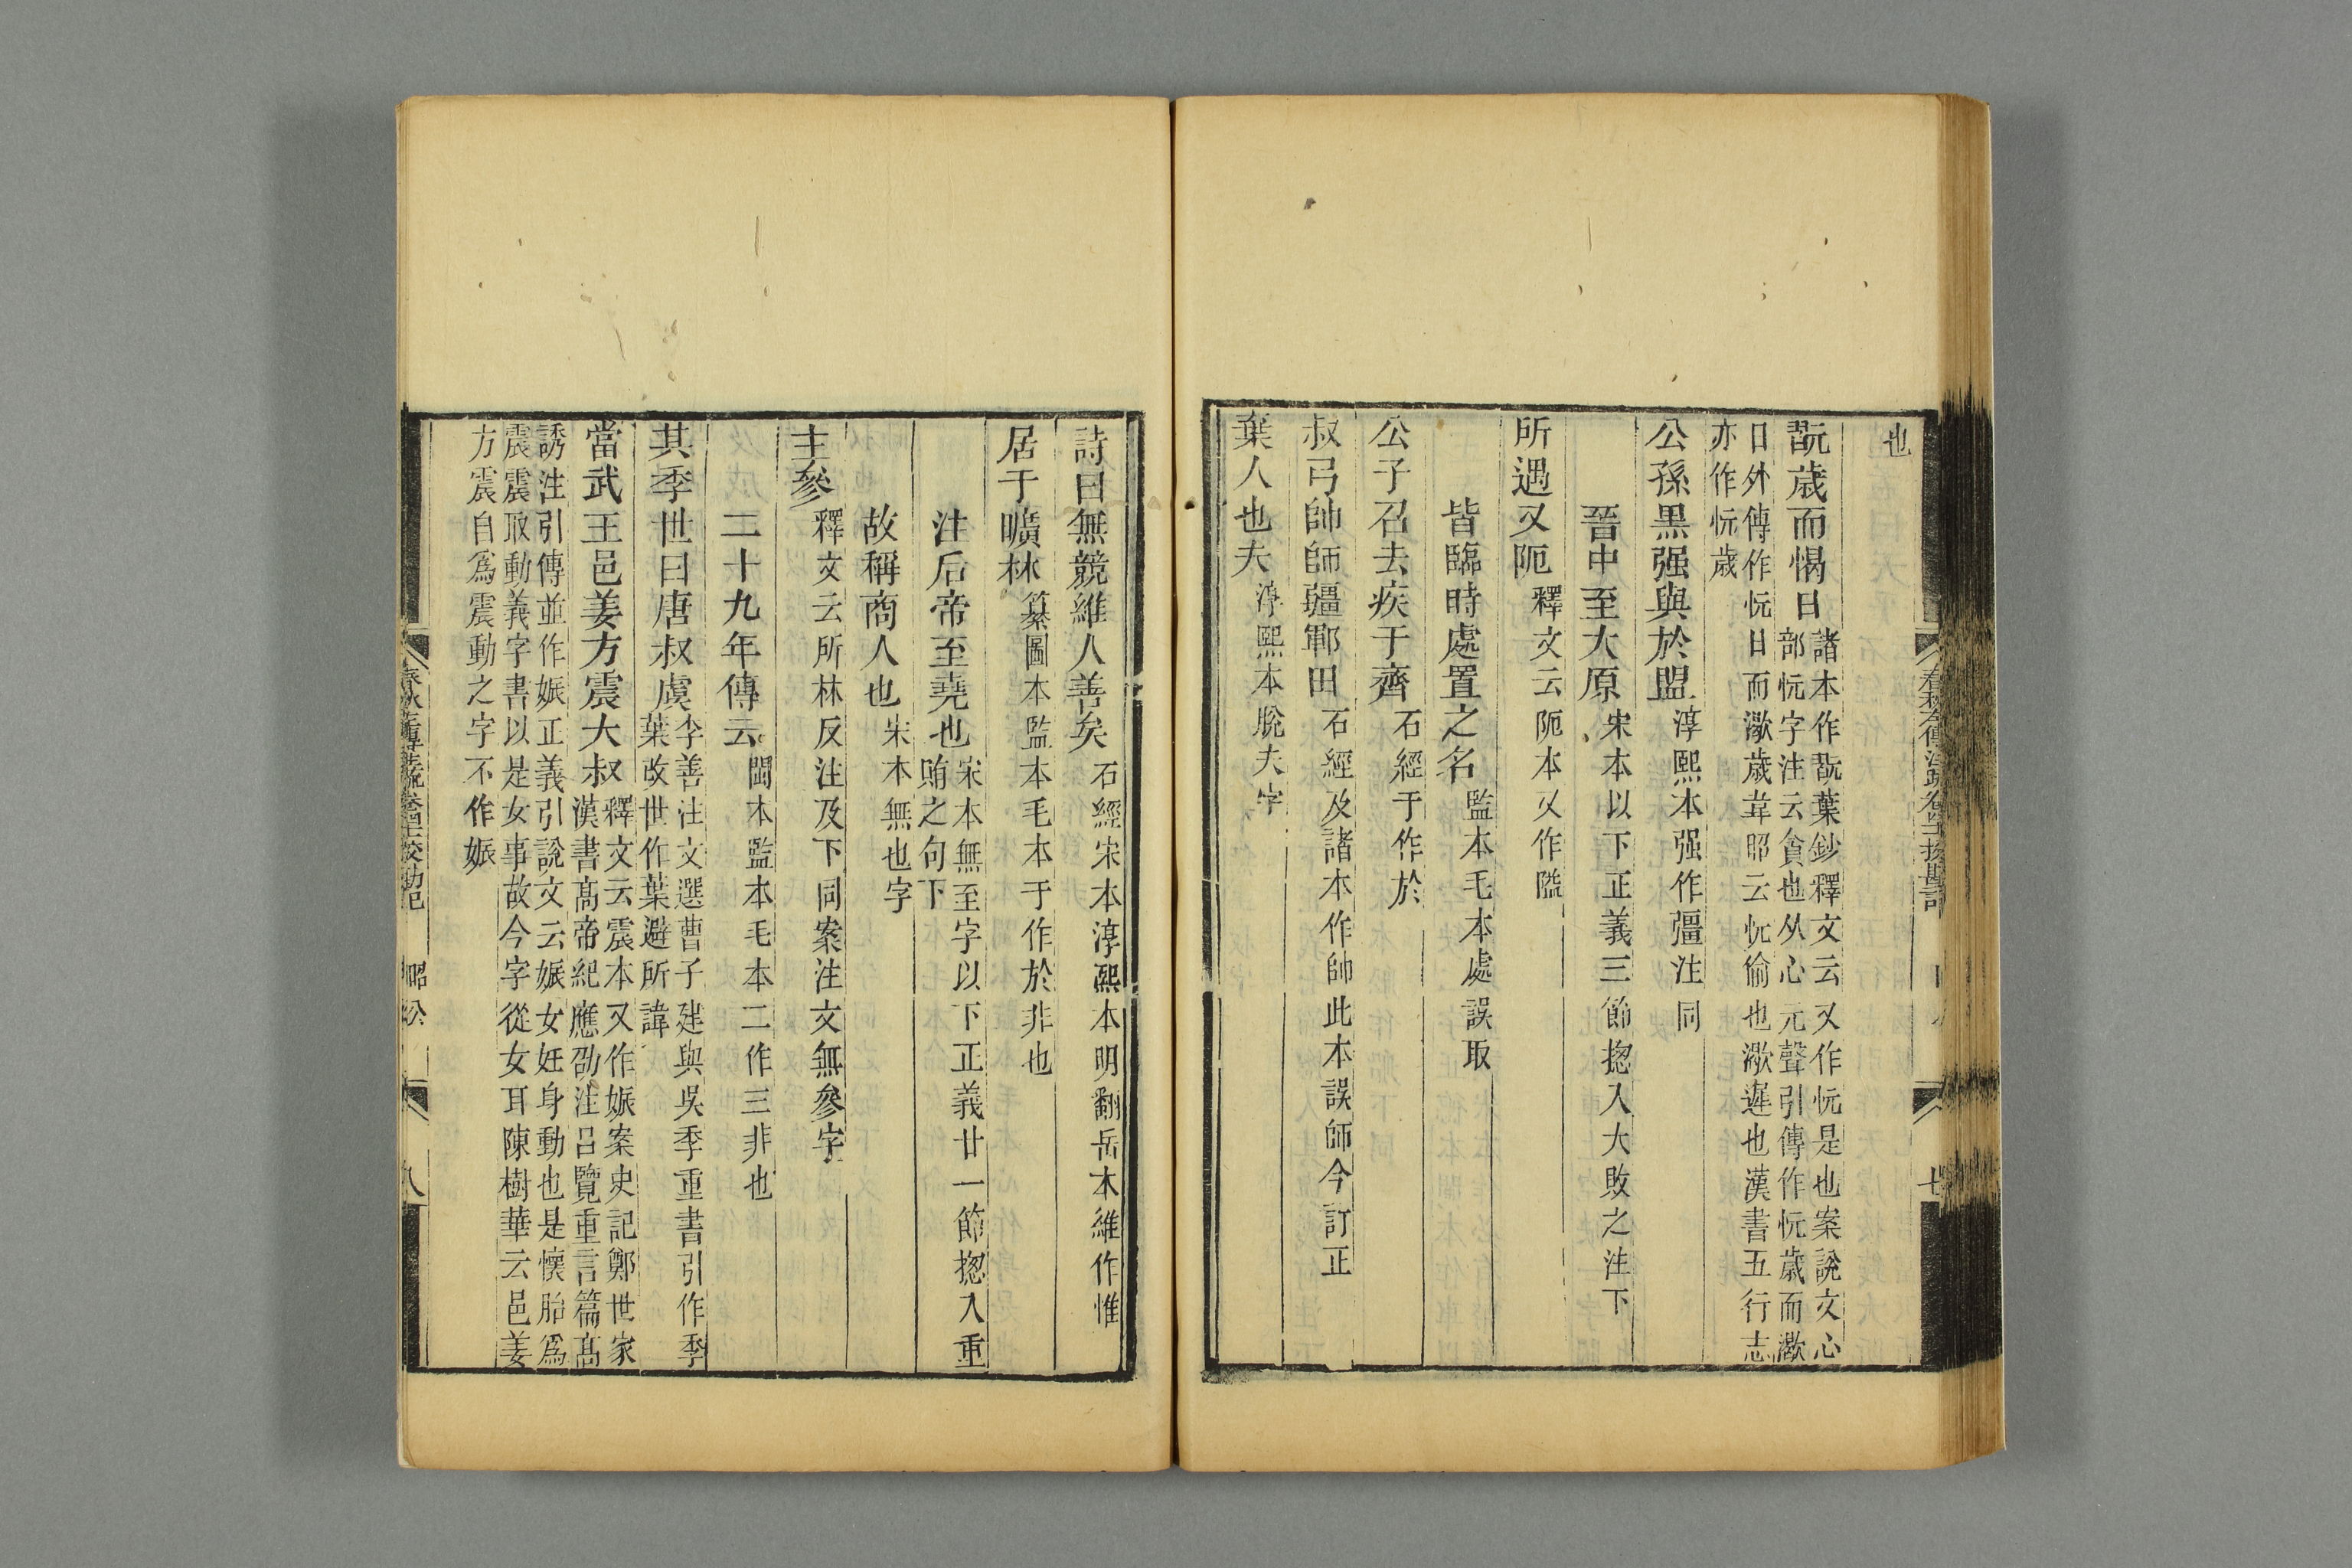 也
翫歲而愒日 諸本作翫葉鈔釋文云又作忨是也案說文心
部忨字注云貪也从心元聲引傳作忨歲而潡
日外傳作忨日而潡歲韋昭云忨偷也潡遲也漢書五行志
亦作忨歲
公孫黑强與於盟 淳熙本强作彊注同
晉中至大原 宋本以下正義三節揔入大敗之注下
所遇又阨 釋文云阨本又作隘
皆臨時處置之名 監本毛本處誤取
公子召去疾于齊 石經于作於
叔弓帥師疆鄆田 石經及諸本作帥此本誤師今訂正
葉人也夫 淳熙本脫夫字
詩曰無競維人善矣 石經宋本淳熙本明翻岳本維作惟
居于曠林 纂圖本監本毛本于作於非也
注后帝至堯也 宋本無至字以下正義廿一節揔入重
賄之句下
故稱商人也 宋本無也字
主參 釋文云所林反注及下同案注文無參字
二十九年傳云 閩本監本毛本二作三非也
其季世曰唐叔虞 李善注文選曹子建與吳季重書引作季
葉改世作葉避所諱
當武王邑姜方震大叔 釋文云震本又作娠案史記鄭世家
漢書高帝紀應劭注呂覽重言篇高
誘注引傳並作娠正義引說文云娠女妊身動也是懷胎爲
震震取動義字書以是女事故今字從女耳陳樹華云邑姜
方震自爲震動之字不作娠